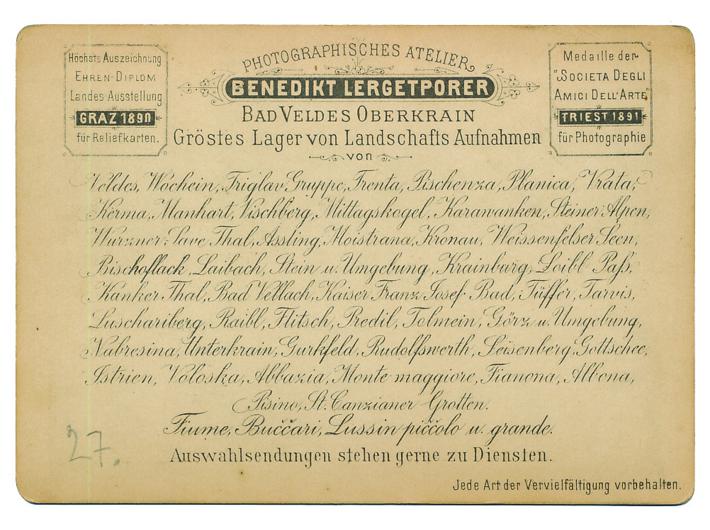 Höchste Auszeichnung
EHREN-DIPLOM
Landes-Ausstellung
GRAZ 1890
für Reliefkarten.
PHOTOGRAPHISCHES ATELIER
BENEDIKT LERGETPORER
BAD VELDES OBERKRAIN
Gröstes Lager von Landschafts Aufnahmen
von
Medaille der
"SOCIETA DEGLI
AMICI DELL'ARTE"
TRIEST 1891
für Photographie
Veldes, Wochein, Triglav Gruppe, Trenta, Pischenza, Planica, Vrata,
Kerma, Manhart, Vischberg, Mittagskogel, Karawanken, Steiner Alpen,
Wurzner-Save Thal, Assling, Moistrana, Kronau, Weissenfelser Seen,
Bischoflack, Laibach, Stein u. Umgebung, Krainburg, Loibl Paß,
Kanker Thal, Bad Vellach, Kaiser Franz Josef Bad, Tüffer, Tarvis,
Luschariberg, Raibl, Flitsch, Predil, Tolmein, Görz u. Umgebung,
Nabresina, Unterkrain, Gurkfeld, Rudolfswerth, Seisenberg, Gottschee,
Istrien, Voloska, Abbazia, Monte maggiore, Fianona, Albona,
Pisino, St. Canzianer Grotten.
Fiume, Buččari, Lussin piččolo u. grande.
Auswahlsendungen stehen gerne zu Diensten.
27.
Jede Art der Vervielfältigung vorbehalten.